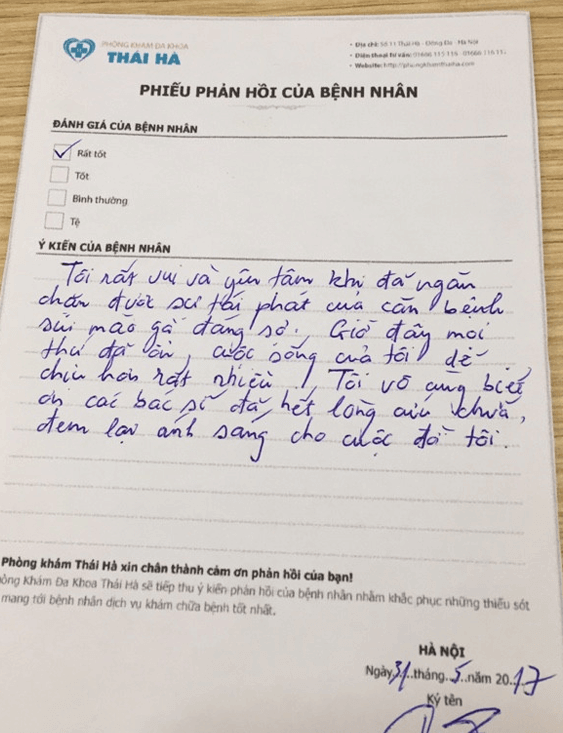 PHÒNG KHÁM ĐA KHOA
THÁI HÀ
• Địa chỉ: Số 11 Thái Hà - Đống Đa - Hà Nội
• Điện thoại tư vấn:
• Website: http://phongkhamthaiha.com
PHIẾU PHẢN HỒI CỦA BỆNH NHÂN
ĐÁNH GIÁ CỦA BỆNH NHÂN
Rất tốt
Tốt
Bình thường
Tệ
Ý KIẾN CỦA BỆNH NHÂN
Tôi rất vui và yên tâm khi đã ngăn
chặn được sự tái phát của căn bệnh
sùi mào gà đáng sợ. Giờ đây mọi
thứ đã ổn, cuộc sống của tôi dễ
chịu hơn rất nhiều. Tôi vô cùng biết
ơn các bác sĩ đã hết lòng cứu chữa,
đem lại ánh sáng cho cuộc đời tôi.
Phòng khám Thái Hà xin chân thành cám ơn phản hồi của bạn!
hòng Khám Đa Khoa Thái Hà sẽ tiếp thu ý kiến phản hồi của bệnh nhân nhằm khắc phục những thiếu sót
mang tới bệnh nhân dịch vụ khám chữa bệnh tốt nhất.
HÀ NỘI
Ngày 31 tháng 5 năm 2017
Ký tên